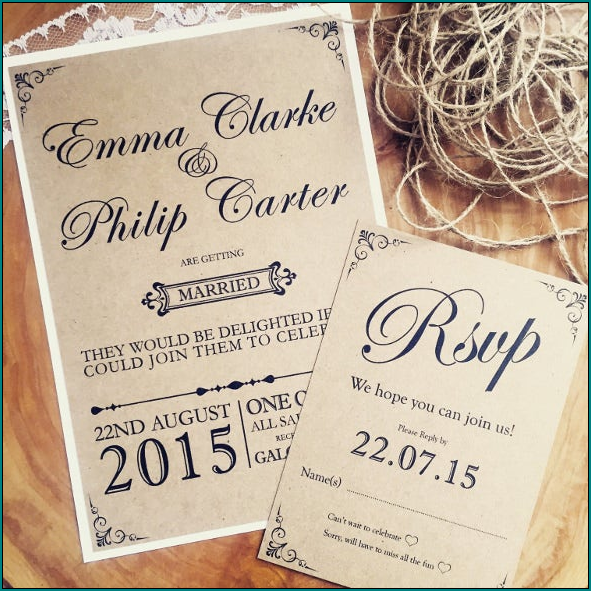 Emma Clarke
&
Philip Carter
ARE GETTING
MARRIED
THEY WOULD BE DELIGHTED IF
COULD JOIN THEM TO
22ND AUGUST
2015
ONE
ALL
Rsvp
We hope you can join us!
Please Reply by
22.07.15
Name(s)
Can't wait to celebrate
Sorry, will have to miss all the fun